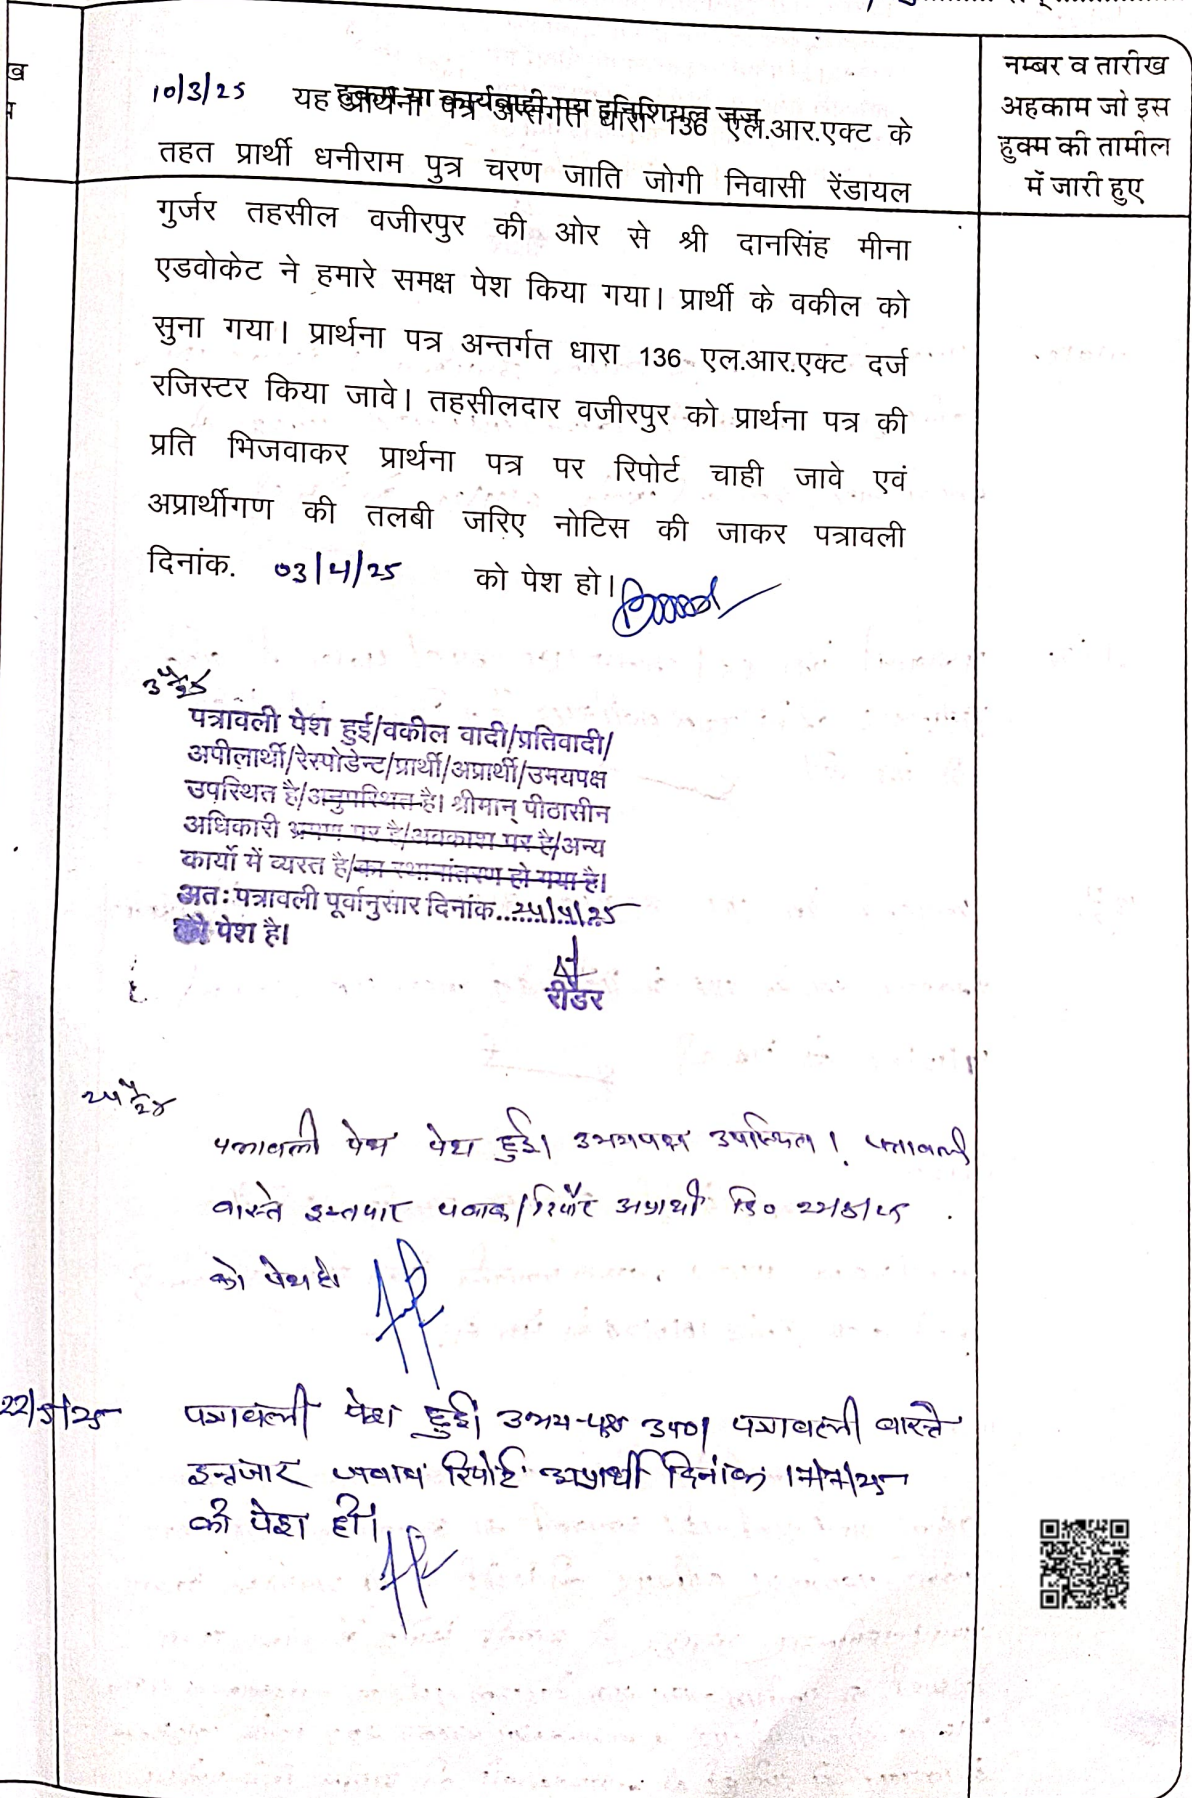 नम्बर व तारीख
अहकाम जो इस
हुक्म की तामील
में जारी हुए
हुक्म या कार्यवाही मय इनिशियल जज
10/3/25 यह प्रार्थना पत्र अन्तर्गत धारा 136 एल.आर.एक्ट के
तहत प्रार्थी धनीराम पुत्र चरण जाति जोगी निवासी रेंडायल
गुर्जर तहसील वजीरपुर की ओर से श्री दानसिंह मीना
एडवोकेट ने हमारे समक्ष पेश किया गया। प्रार्थी के वकील को
सुना गया। प्रार्थना पत्र अन्तर्गत धारा 136 एल.आर.एक्ट दर्ज
रजिस्टर किया जावे। तहसीलदार वजीरपुर को प्रार्थना पत्र की
प्रति भिजवाकर प्रार्थना पत्र पर रिपोर्ट चाही जावे एवं
अप्रार्थीगण की तलबी जरिए नोटिस की जाकर पत्रावली
दिनांक. 03/4/25 को पेश हो।
पत्रावली पेश हुई/वकील वादी/प्रतिवादी/
अपीलार्थी/रेस्पोडेन्ट/प्रार्थी/अप्रार्थी/उभयपक्ष
उपस्थित है/अनुपस्थित है। श्रीमान् पीठासीन
अधिकारी भ्रमण पर है/अवकाश पर है/अन्य
कार्यो में व्यस्त है/का स्थानांतरण हो गया है।
अतः पत्रावली पूर्वानुसार दिनांक..24/4/25
को पेश है।
रीडर
पत्रावली पेश पेश हुई। उभयपक्ष उपस्थित। पत्रावली
वास्ते इन्तजार जवाब/रिपोर्ट अप्रार्थी दि० 22/5/25
को पेश हो।
22/5/25 पत्रावली पेश हुई। उभय-पक्ष उप०। पत्रावली वास्ते
इन्तजार जवाब रिपोर्ट अप्रार्थी दिनांक 17/7/25
को पेश हो।